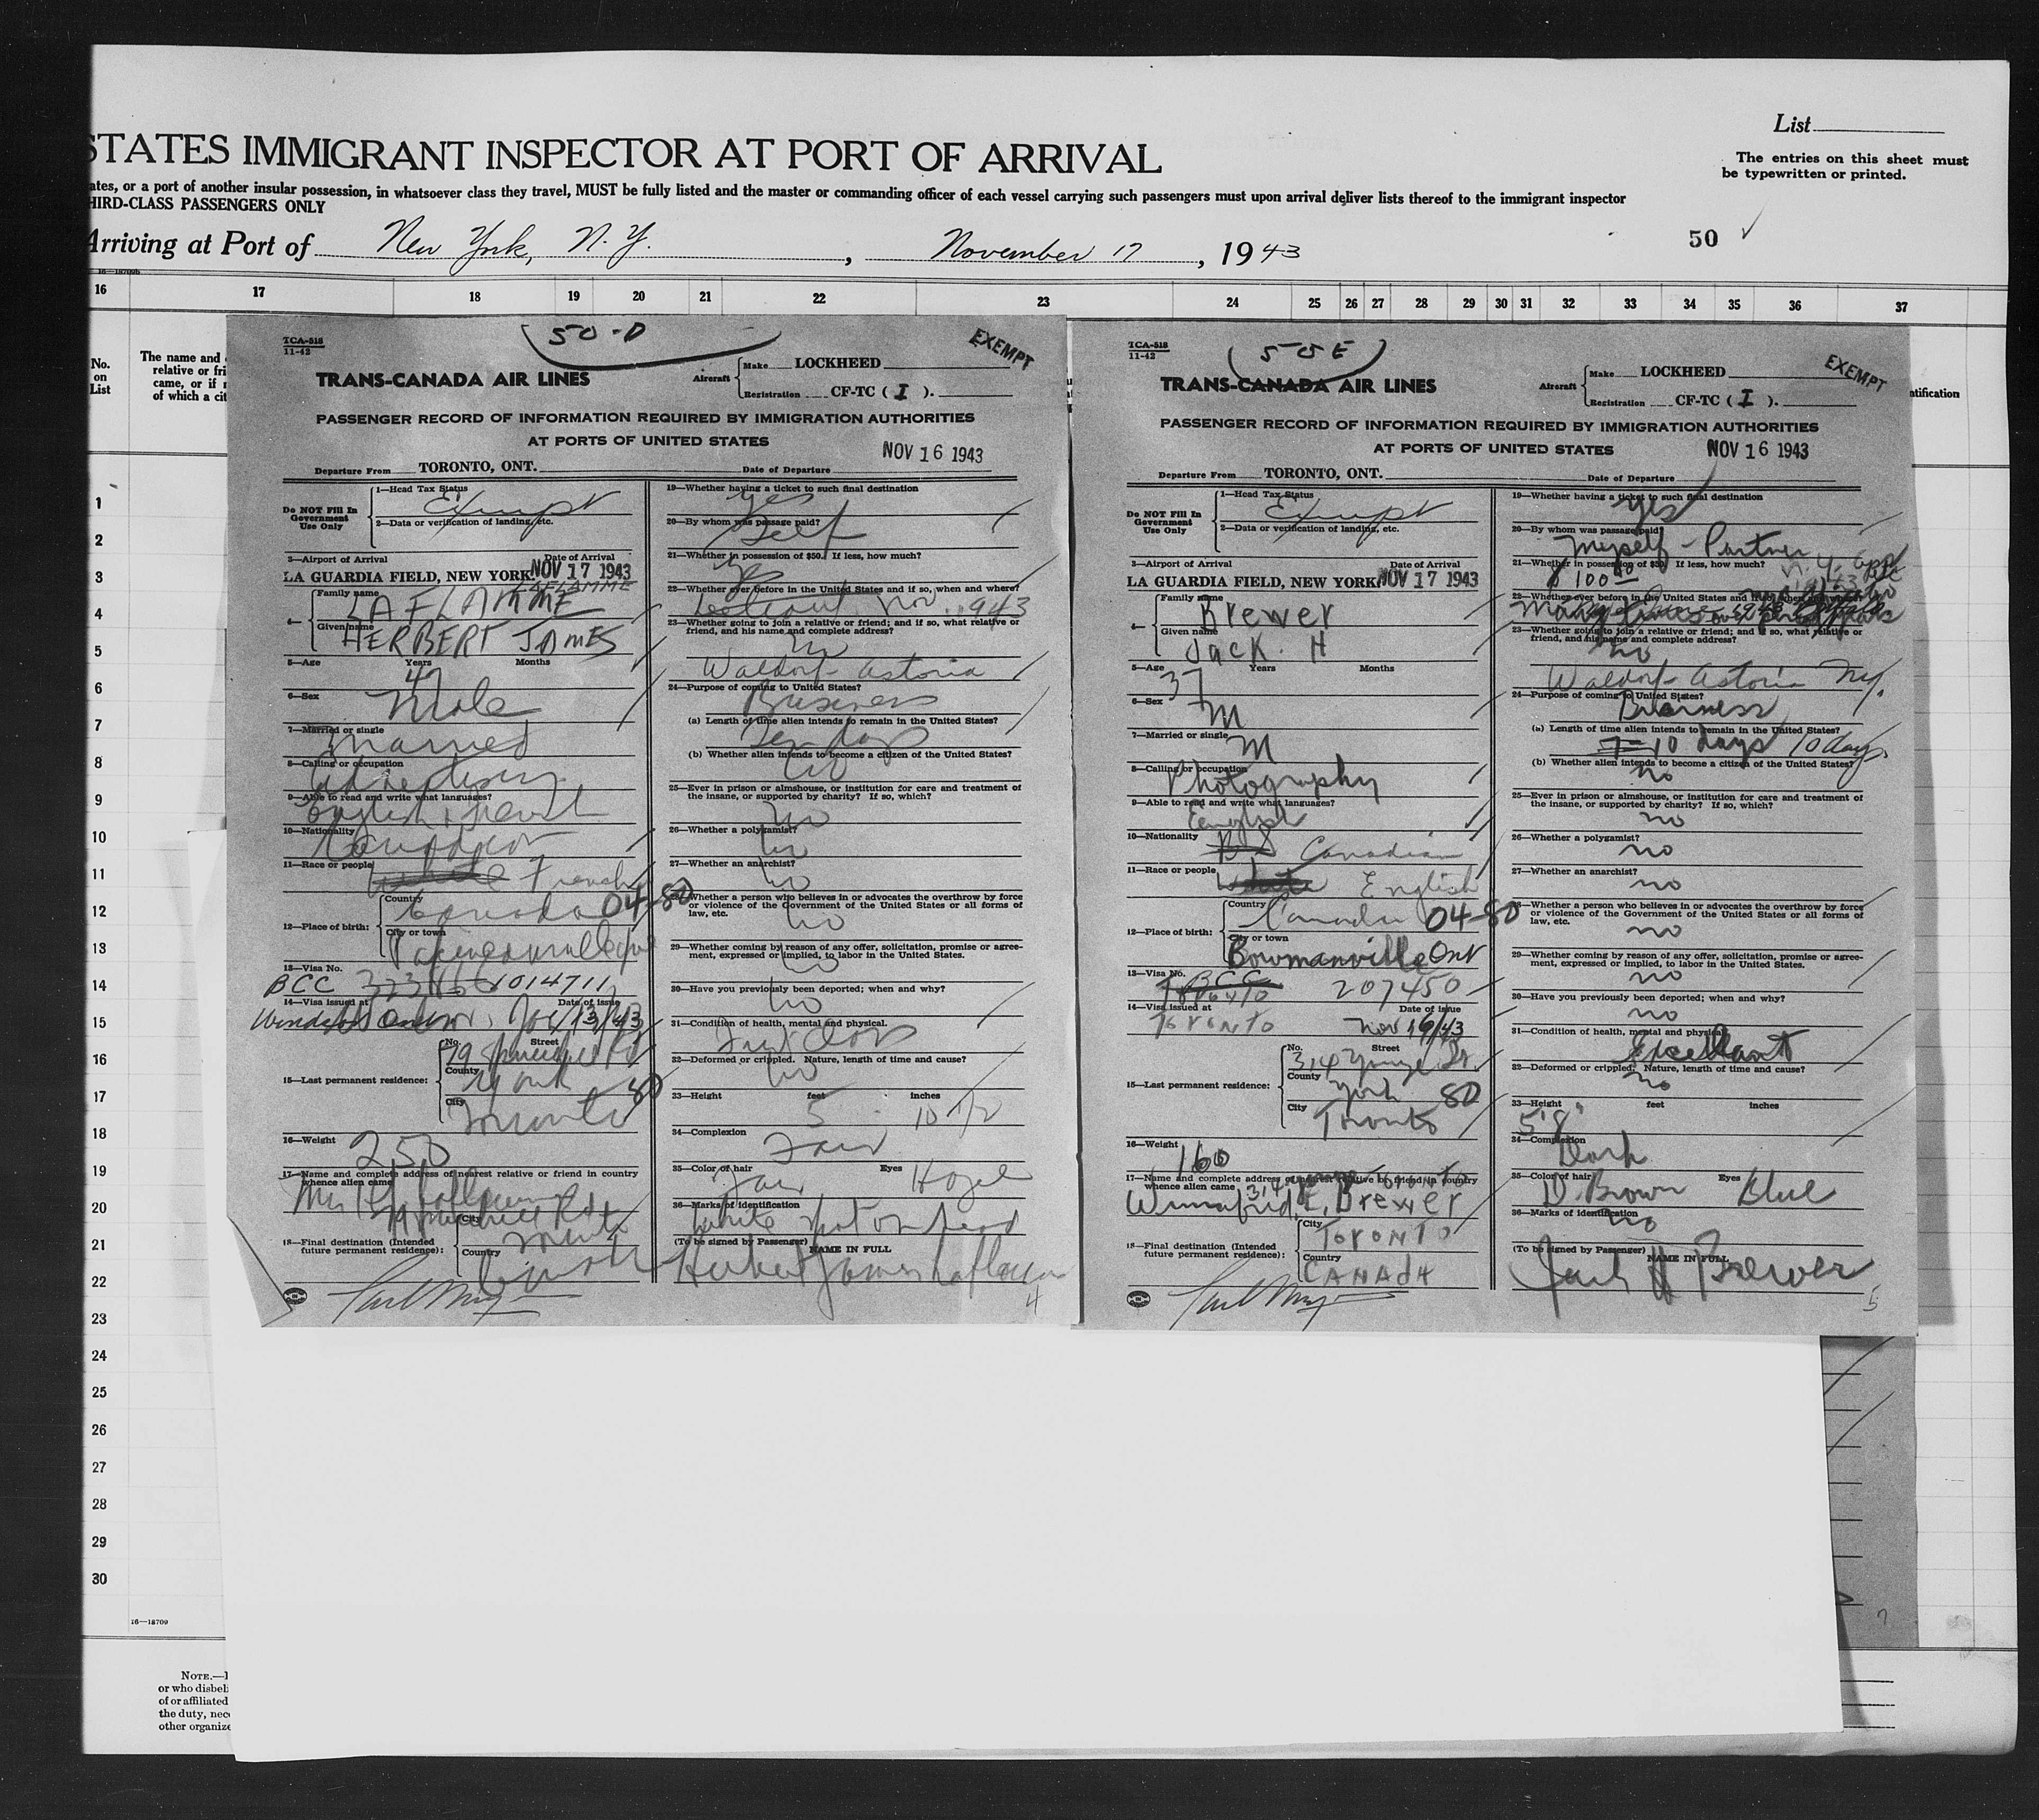 List
The entries on this sheet must
be typewritten or printed.
STATES IMMIGRANT INSPECTOR AT PORT OF ARRIVAL
ates, or a port of another insular possession, in whatsoever class they travel, MUST be fully listed and the master or commanding officer of each vessel carrying such passengers must upon arrival deliver lists thereof to the immigrant inspector
HIRD-CLASS PASSENGERS ONLY
Arriving at Port of New York, N. Y. , November 17 , 1943
50
16 17 18 19 20 21 22 23 24 25 26 27 28 29 30 31 32 33 34 35 36 37
No.
on
List
The name and
relative or fri
came, or if
of which a cit
ntification
1
2
3
4
5
6
7
8
9
10
11
12
13
14
15
16
17
18
19
20
21
22
23
24
25
26
27
28
29
30
16—18709
NOTE.—
or who disbeli
of or affiliated
the duty, nec
other organiz
TCA-518
11-42
50-D
EXEMPT
TRANS-CANADA AIR LINES
Aircraft
Make LOCKHEED
Registration CF-TC ( I ).
PASSENGER RECORD OF INFORMATION REQUIRED BY IMMIGRATION AUTHORITIES
AT PORTS OF UNITED STATES
NOV 16 1943
Departure From TORONTO, ONT. Date of Departure
Do NOT Fill In
Government
Use Only
1—Head Tax Status
Exempt
2—Data or verification of landing, etc.
3—Airport of Arrival Date of Arrival
LA GUARDIA FIELD, NEW YORK NOV 17 1943
LAFLAMME
4— Family name
LAFLAMME
Given name
HERBERT JAMES
5—Age Years Months
47
6—Sex
Male
7—Married or single
Married
8—Calling or occupation
Advertising
9—Able to read and write what languages?
English & French
10—Nationality
Canadian
11—Race or people
White French
12—Place of birth:
Country
Canada 04-80
City or town
13—Visa No.
BCC 1014711
14—Visa issued at Date of issue
Windsor
15—Last permanent residence:
No. Street
79
County
York 80
City
Toronto
16—Weight
250
17—Name and complete address of nearest relative or friend in country
whence alien came
Mrs
18—Final destination (Intended
future permanent residence):
City
Toronto
Country
19—Whether having a ticket to such final destination
Yes
20—By whom was passage paid?
Self
21—Whether in possession of $50. If less, how much?
Yes
22—Whether ever before in the United States and if so, when and where?
1943
23—Whether going to join a relative or friend; and if so, what relative or
friend, and his name and complete address?
no
Waldorf-Astoria
24—Purpose of coming to United States?
Business
(a) Length of time alien intends to remain in the United States?
Ten days
(b) Whether alien intends to become a citizen of the United States?
no
25—Ever in prison or almshouse, or institution for care and treatment of
the insane, or supported by charity? If so, which?
no
26—Whether a polygamist?
no
27—Whether an anarchist?
no
Whether a person who believes in or advocates the overthrow by force
or violence of the Government of the United States or all forms of
law, etc.
no
29—Whether coming by reason of any offer, solicitation, promise or agree-
ment, expressed or implied, to labor in the United States.
no
30—Have you previously been deported; when and why?
no
31—Condition of health, mental and physical.
32—Deformed or crippled. Nature, length of time and cause?
no
33—Height feet inches
5 10 1/2
34—Complexion
Fair
35—Color of hair Eyes
Fair Hazel
36—Marks of identification
(To be signed by Passenger) NAME IN FULL
Herbert James Laflamme
4
TCA-518
11-42
50E
EXEMPT
TRANS-CANADA AIR LINES
Aircraft
Make LOCKHEED
Registration CF-TC ( I ).
PASSENGER RECORD OF INFORMATION REQUIRED BY IMMIGRATION AUTHORITIES
AT PORTS OF UNITED STATES
NOV 16 1943
Departure From TORONTO, ONT. Date of Departure
Do NOT Fill In
Government
Use Only
1—Head Tax Status
Exempt
2—Data or verification of landing, etc.
3—Airport of Arrival Date of Arrival
LA GUARDIA FIELD, NEW YORK NOV 17 1943
4— Family name
Brewer
Given name
Jack. H
5—Age Years Months
37
6—Sex
M
7—Married or single
M
8—Calling or occupation
Photography
9—Able to read and write what languages?
English
10—Nationality
BS Canadian
11—Race or people
White English
12—Place of birth:
Country
Canada 04-80
City or town
Bowmanville Ont
13—Visa No.
BCC 207450
Toronto
14—Visa issued at Date of issue
Toronto Nov 16/43
15—Last permanent residence:
No. Street
314 Yonge St.
County
York 80
City
Toronto
16—Weight
160
17—Name and complete address of nearest relative or friend in country
whence alien came
Winnafrid. E. Brewer
18—Final destination (Intended
future permanent residence):
City
Toronto
Country
CANADA
19—Whether having a ticket to such final destination
Yes
20—By whom was passage paid?
Myself - Partner
21—Whether in possession of $50. If less, how much?
$100
22—Whether ever before in the United States and if so, when and where?
Many times
23—Whether going to join a relative or friend; and if so, what relative or
friend, and his name and complete address?
no
Waldorf-Astoria Ny.
24—Purpose of coming to United States?
Business
(a) Length of time alien intends to remain in the United States?
7-10 days 10 days
(b) Whether alien intends to become a citizen of the United States?
no
25—Ever in prison or almshouse, or institution for care and treatment of
the insane, or supported by charity? If so, which?
no
26—Whether a polygamist?
no
27—Whether an anarchist?
no
Whether a person who believes in or advocates the overthrow by force
or violence of the Government of the United States or all forms of
law, etc.
no
29—Whether coming by reason of any offer, solicitation, promise or agree-
ment, expressed or implied, to labor in the United States.
no
30—Have you previously been deported; when and why?
no
31—Condition of health, mental and physical.
Excellant
32—Deformed or crippled. Nature, length of time and cause?
no
33—Height feet inches
5'8"
34—Complexion
Dark
35—Color of hair Eyes
D. Brown Blue
36—Marks of identification
no
(To be signed by Passenger) NAME IN FULL
Jack H Brewer
5